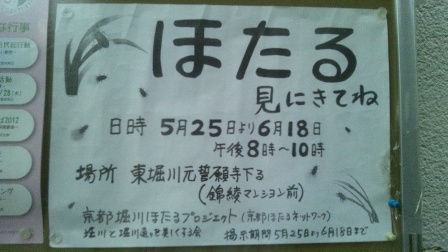 ほたる
見にきてね
日時 5月25日より6月18日
午後8時〜10時
場所 東堀川元誓願寺下る
(錦綾マンション前)
京都堀川ほたるプロジェクト(京都ほたるネットワーク)
堀川と堀川通りを美しくする会 掲示期間5月25日から6月18日まで
な行事
2012